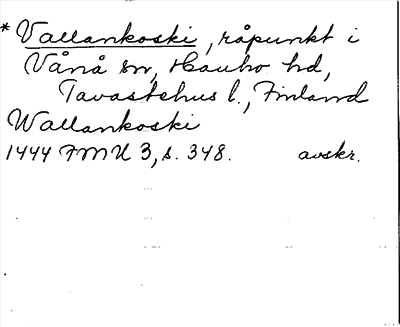 * Vallankoski, råpunkt i
Vånå sn, Hauho hd,
Tavastehus l., Finland
Wallankoski
1444 FMU 3, s. 348. avskr.